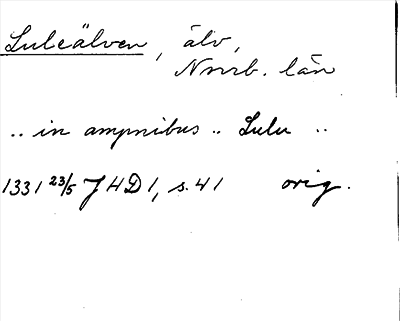 Luleälven, älv,
Norrb. län
.. in ampnibus .. Lulu ..
1331 23/5 JHD 1, s. 41 orig.